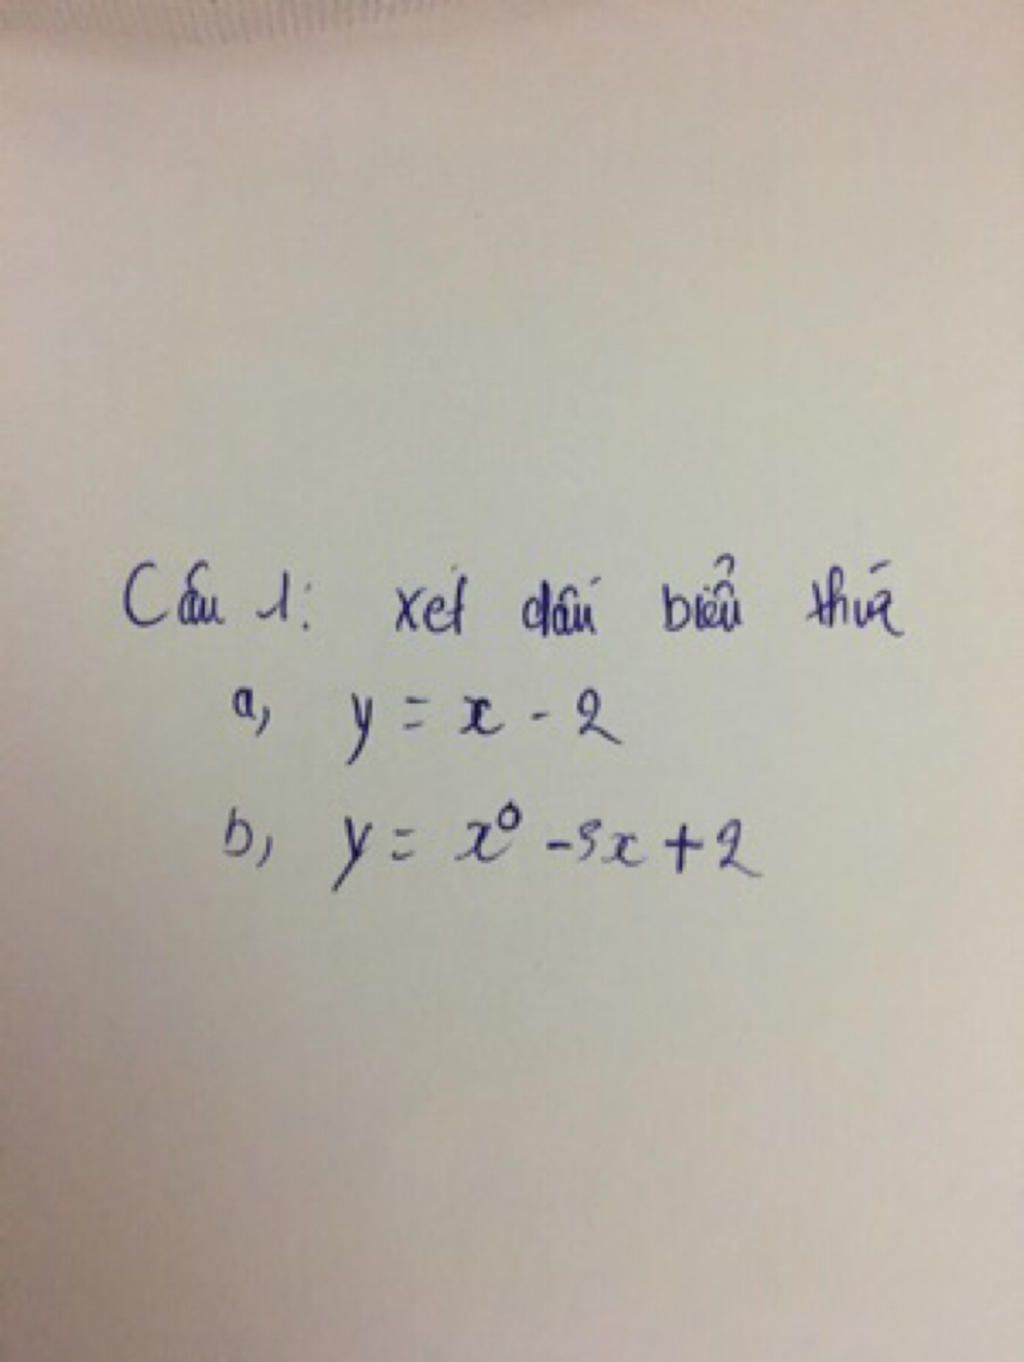 Câu 1: xét dấu biểu thức
a, y = x - 2
b, y = x⁰ -3x + 2